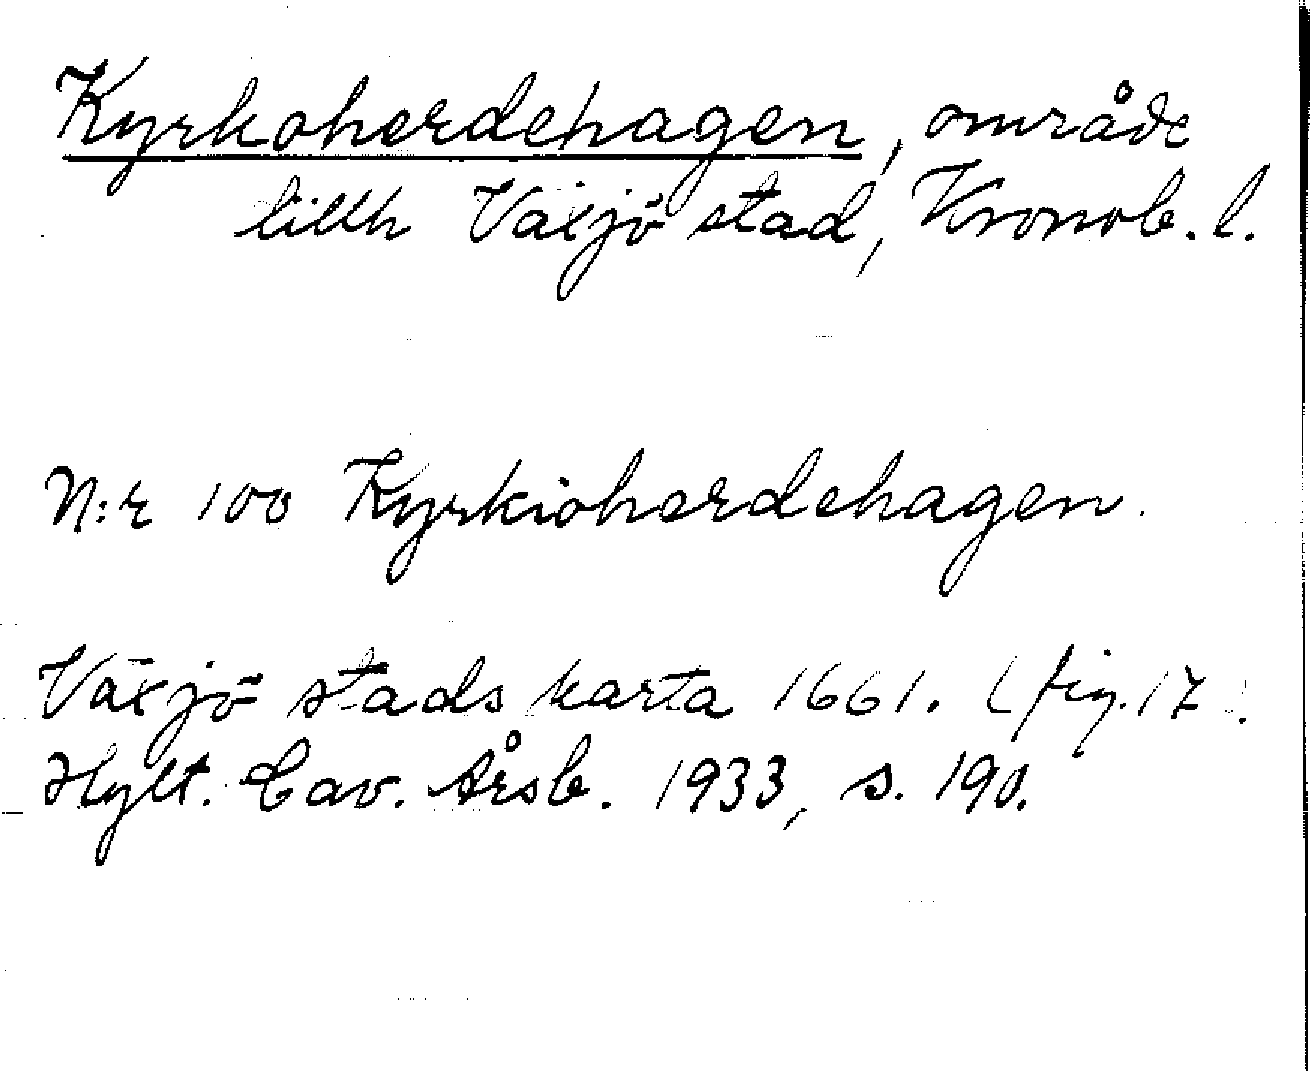 Kyrkoherdehagen, område
tillh Växjö stad, Kronob. l.
N:r 100 Kyrkioherdehagen.
Växjö stads karta 1661. (fig. 17).
Hylt. Cav. Årsb. 1933, s. 190.